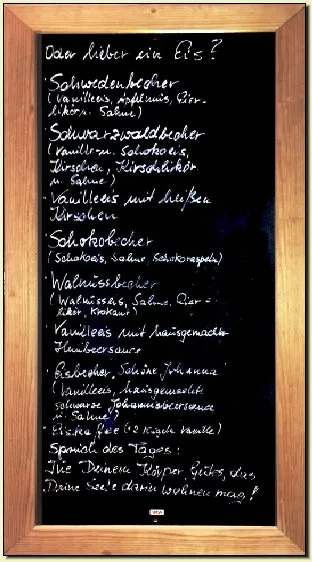 Oder lieber ein Eis?
· Schwedenbecher
(Vanilleeis, Apfelmus, Eier-
likör u. Sahne)
· Schwarzwaldbecher
(Vanille u. Schokoeis,
Kirschen, Kirschlikör
u. Sahne)
· Vanilleeis mit heißen
Kirschen
· Schokobecher
(Schokoeis, Sahne, Schokoraspeln)
· Walnussbecher
(Walnusseis, Sahne, Eier-
likör, Krokant)
· Vanilleeis mit hausgemachter
Himbeersauce
· Eisbecher "Schöne Johanna"
(Vanilleeis, hausgemachte
schwarze Johannisbeersauce
u. Sahne)
· Eiskaffee (2 Kugeln Vanille)
Spruch des Tages:
Tue Deinem Körper Gutes, das
Deine Seele darin wohnen mag!